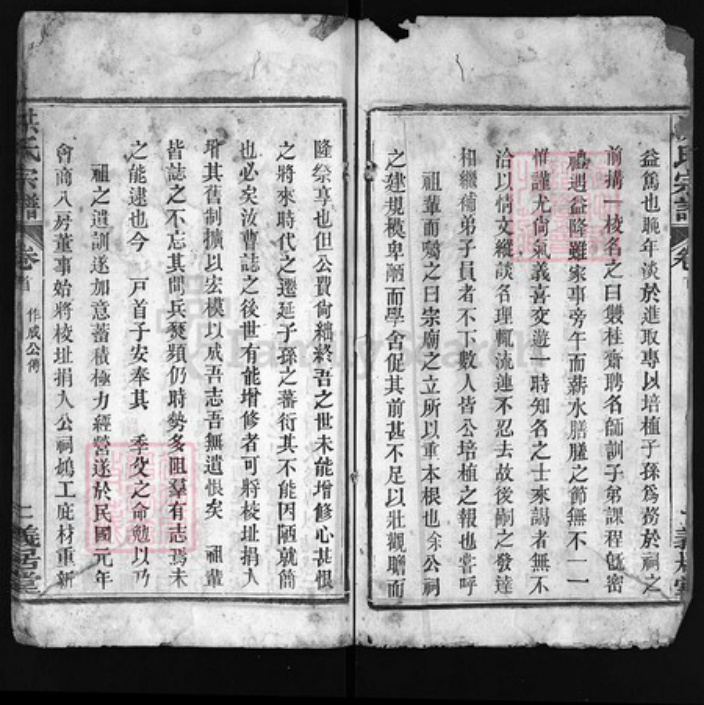 益篤也晚年淡於進取專以培植子孫爲務於祠之
前搆一棱名之曰雙桂齋聘名師訓子弟課程旣密
禮遇益隆雖家事旁午而薪水膳饈之節無不一一
惟謹尤尙氣義喜交遊一時知名之士來謁者無不
洽以情文縱談名理輒流連不忍去故後嗣之發達
相繼補弟子員者不下數人皆公培植之報也嘗呼
祖輩而囑之曰宗廟之立所以重本根也余公祠
之建規模卑陋而學舍促其前甚不足以壯觀瞻而
隆祭享也但公費尙絀終吾之世未能增修心甚恨
之將來時代之遷延子孫之蕃衍其不能因陋就簡
也必矣汝曹誌之後世有能增修者可將棱址捐入
增其舊制擴以宏模以成吾志吾無遺恨矣 祖輩
皆誌之不忘其間兵燹頻仍時勢多阻羣有志焉未
之能逮也今 戸首子安奉其 季父之命勉以乃
祖之遺訓遂加意蓄積極力經營遂於民國元年
會商八房董事始將棱址捐入公祠鳩工庀材重新
洪氏宗譜 卷首 作咸公傳 二 義居堂
氏宗譜 卷 義居堂
Family Search